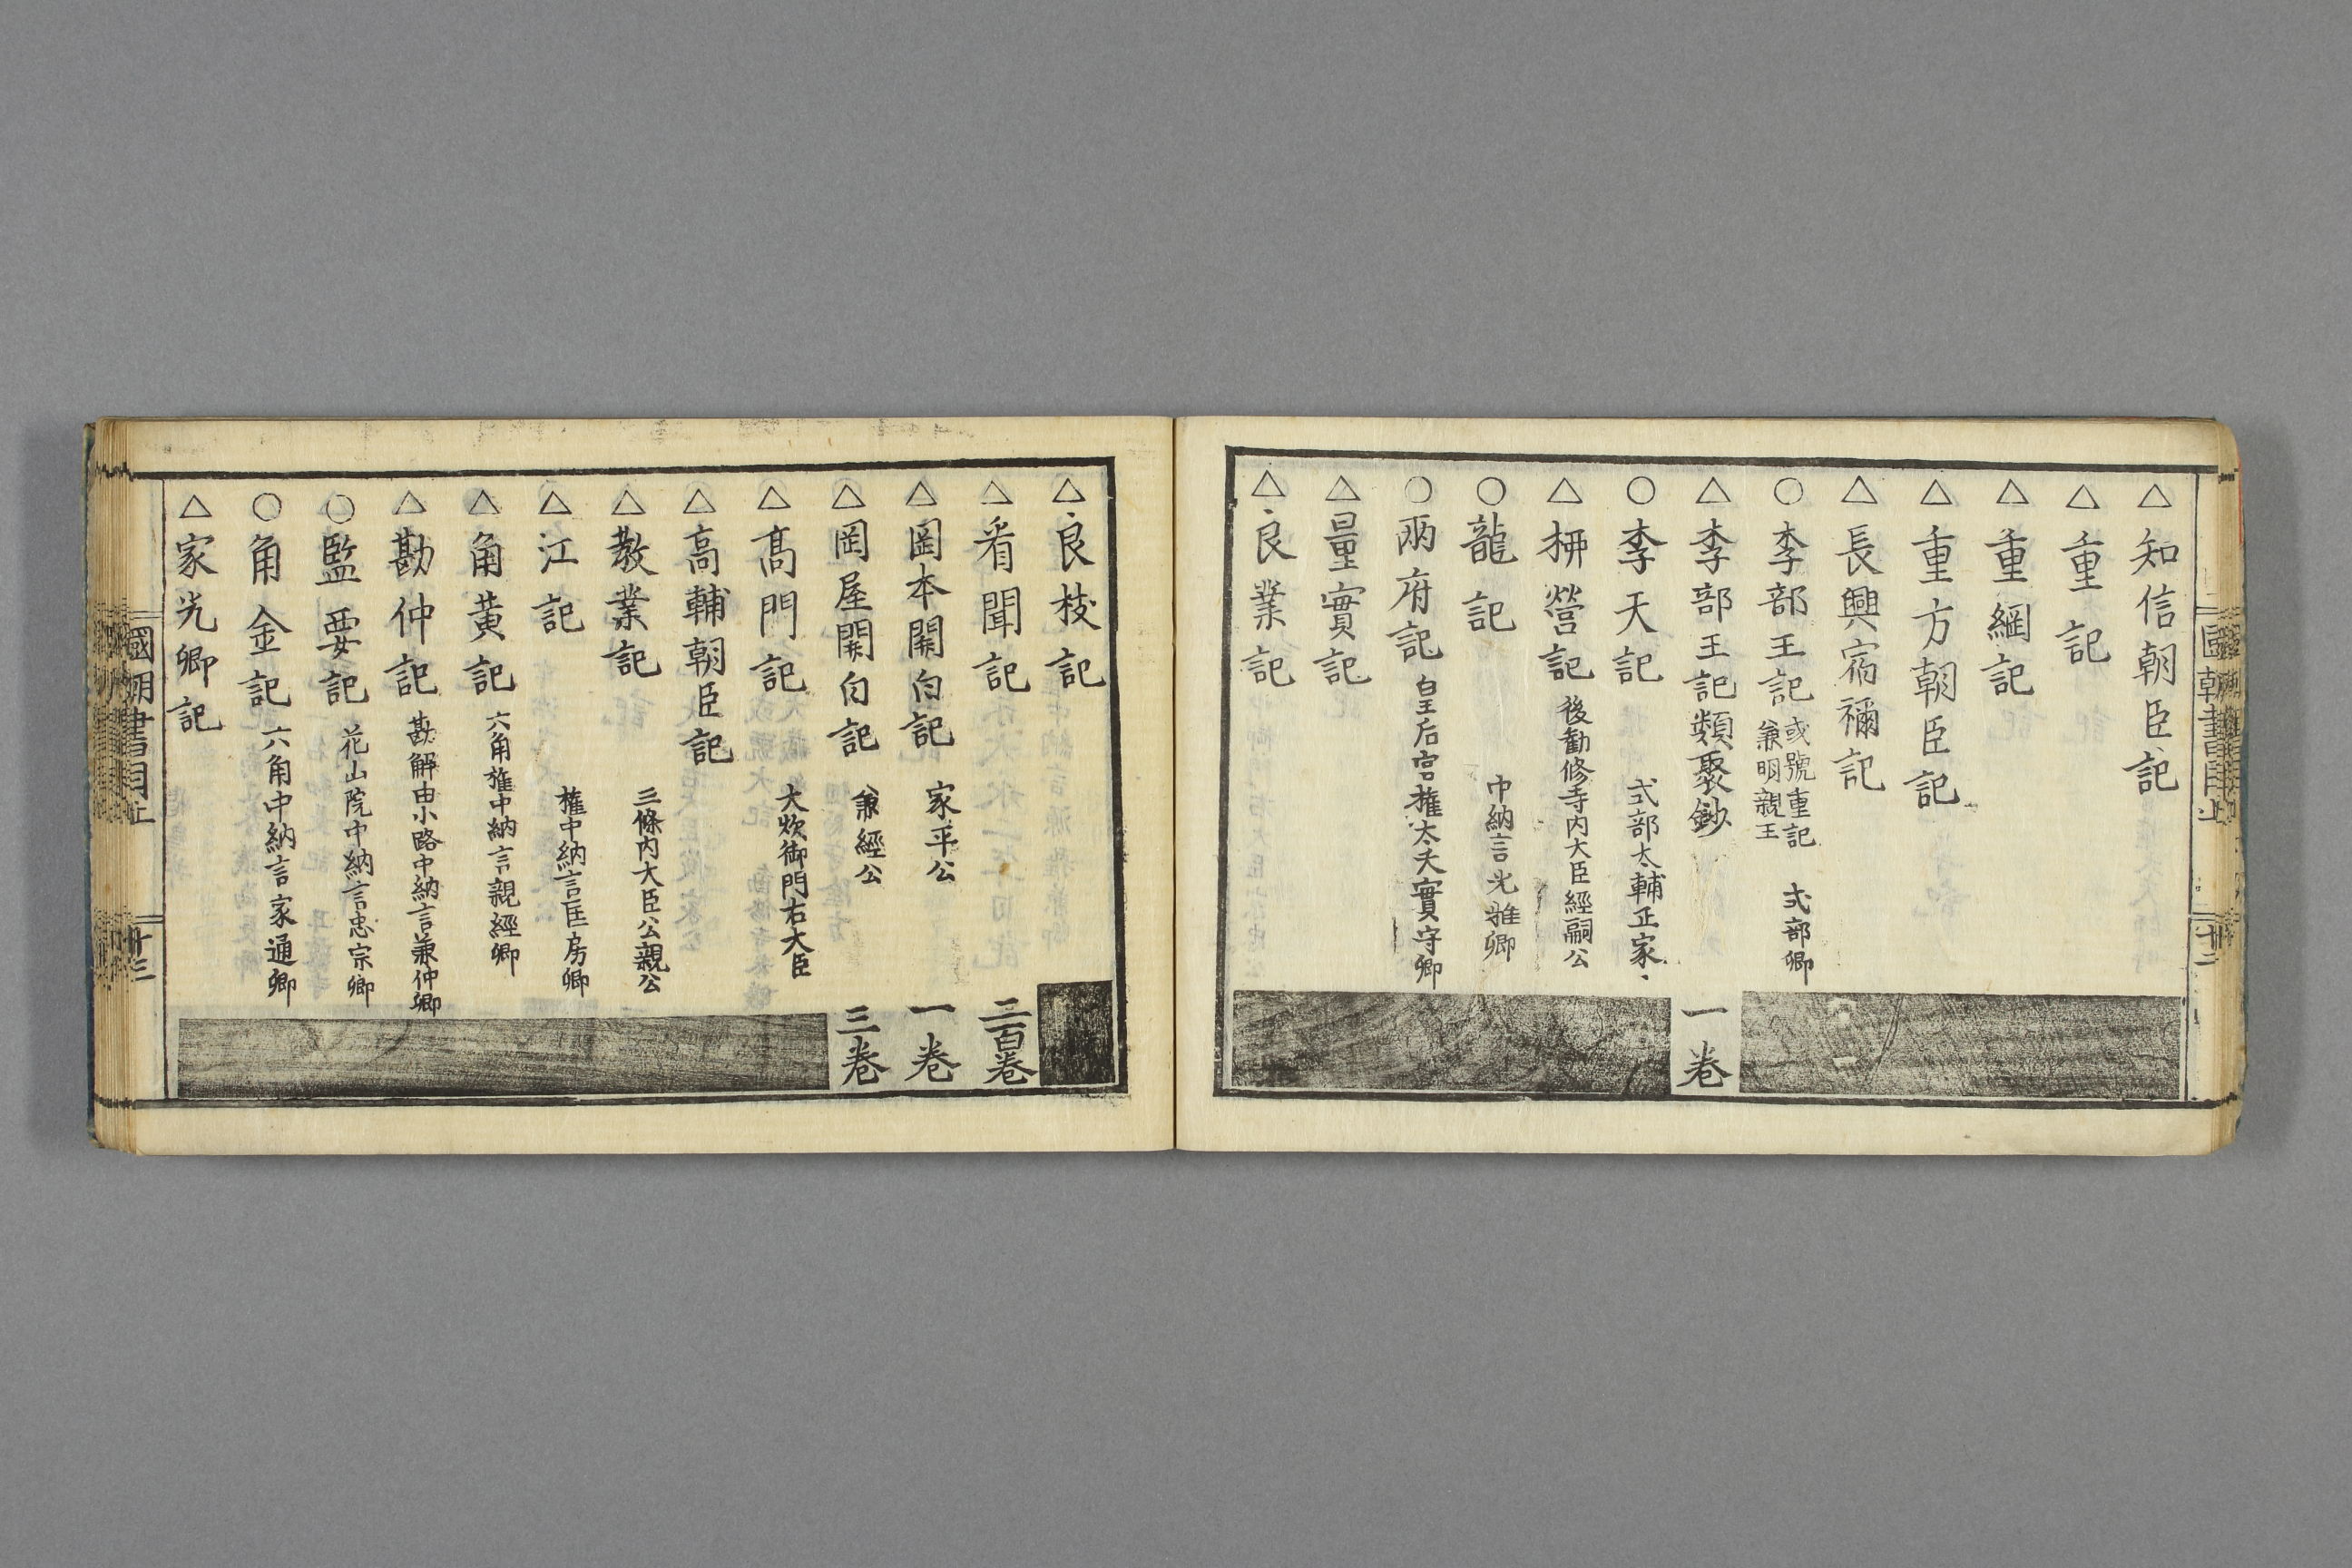 △知信朝臣記
△重記
△重綱記
△重方朝臣記
△長興宿禰記
○李部王記 或號重記 兼明親王 式部卿
△李部王記類聚鈔 一卷
○李天記 式部太輔正家
△栟營記 後勸修寺内大臣經嗣公
○龍記 中納言光雅卿
○兩府記 皇后宮権太夫實守卿
△量實記
△良業記
國朝書目上 十二
△良枝記
△看聞記 二百卷
△岡本關白記 家平公 一卷
△岡屋關白記 兼經公 三卷
△髙門記 大炊御門右大臣
△高輔朝臣記
△教業記 三條内大臣公親公
△江記 権中納言匡房卿
△角黄記 六角権中納言親經卿
△勘仲記 勘解由小路中納言兼仲卿
○監要記 花山院中納言忠宗卿
○角金記 六角中納言家通卿
△家光卿記
國朝書目上 十三